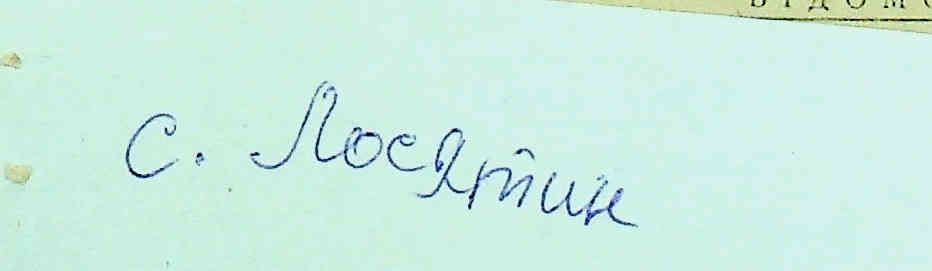 ВІДОМО
с. Лосятин